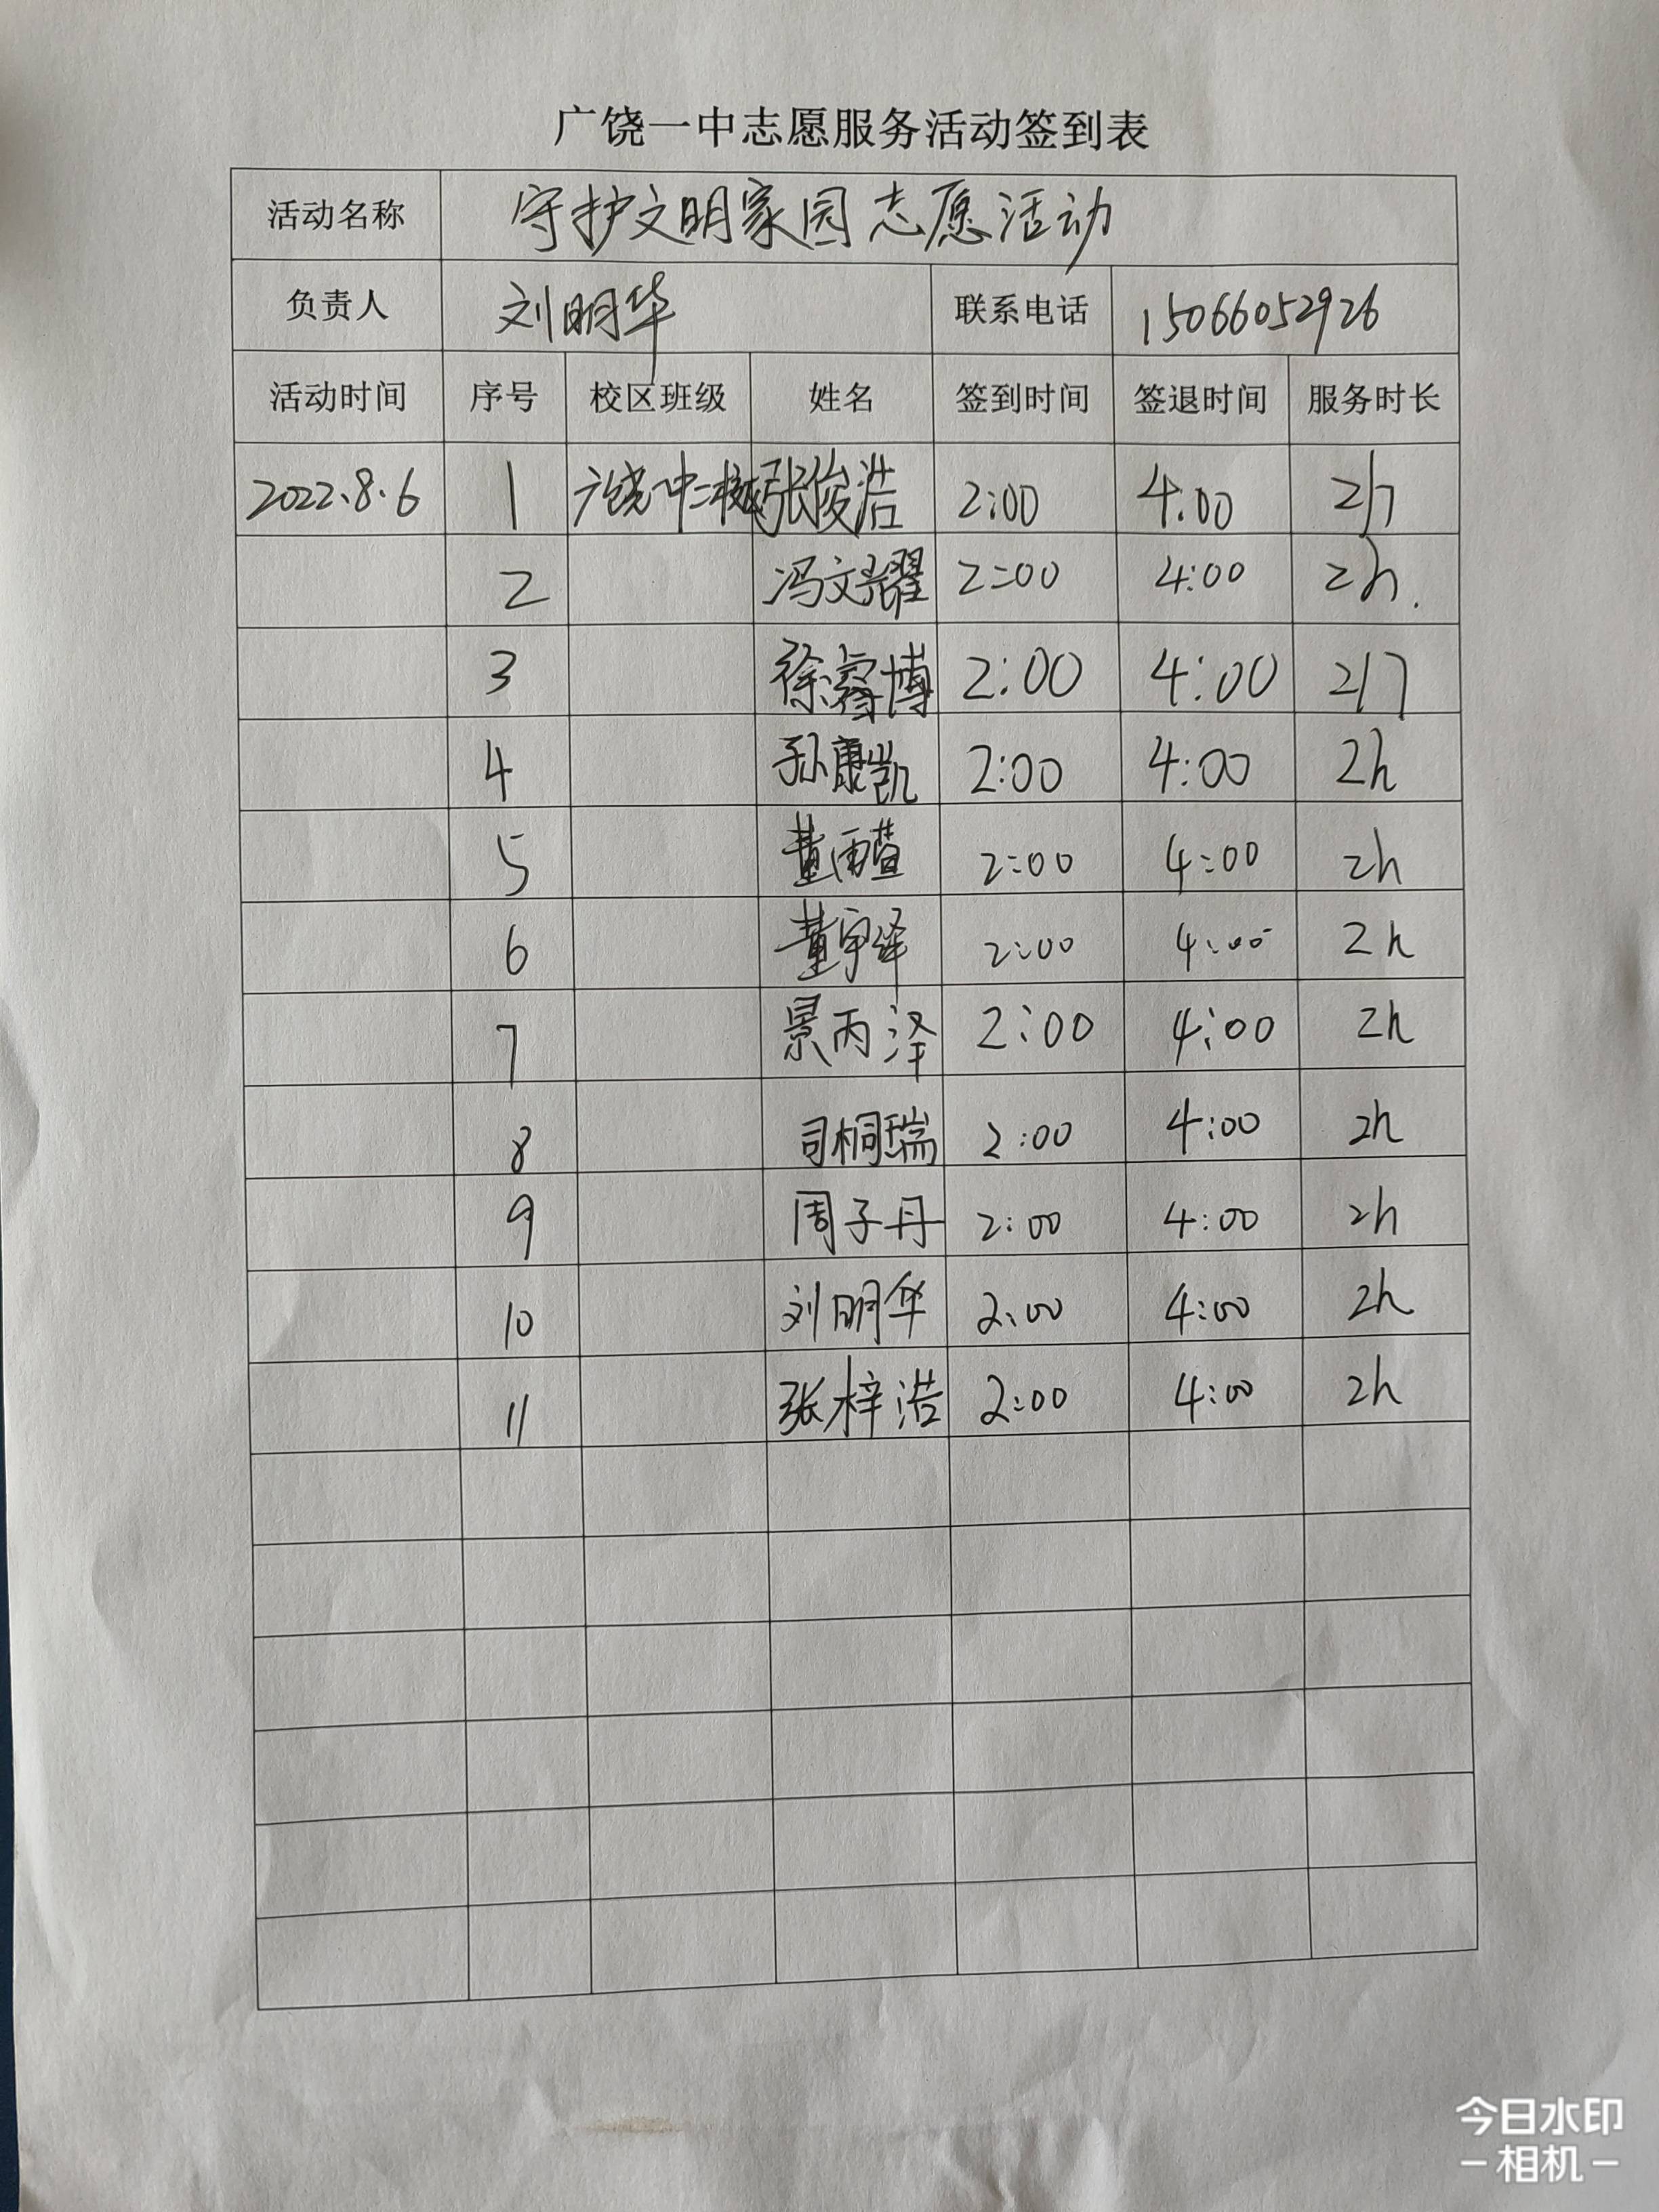 广饶一中志愿服务活动签到表
活动名称 守护文明家园志愿活动
负责人 刘明华 联系电话 15066052926
活动时间 序号 校区班级 姓名 签到时间 签退时间 服务时长
2022.8.6 1 广饶一中二校区 张俊浩 2:00 4:00 2h
2 冯文耀 2:00 4:00 2h.
3 徐睿博 2:00 4:00 2h
4 孙康凯 2:00 4:00 2h
5 董雨萱 2:00 4:00 2h
6 董宇泽 2:00 4:00 2h
7 景丙泽 2:00 4:00 2h
8 司桐瑞 2:00 4:00 2h
9 周子丹 2:00 4:00 2h
10 刘明华 2:00 4:00 2h
11 张梓浩 2:00 4:00 2h
今日水印
-相机-